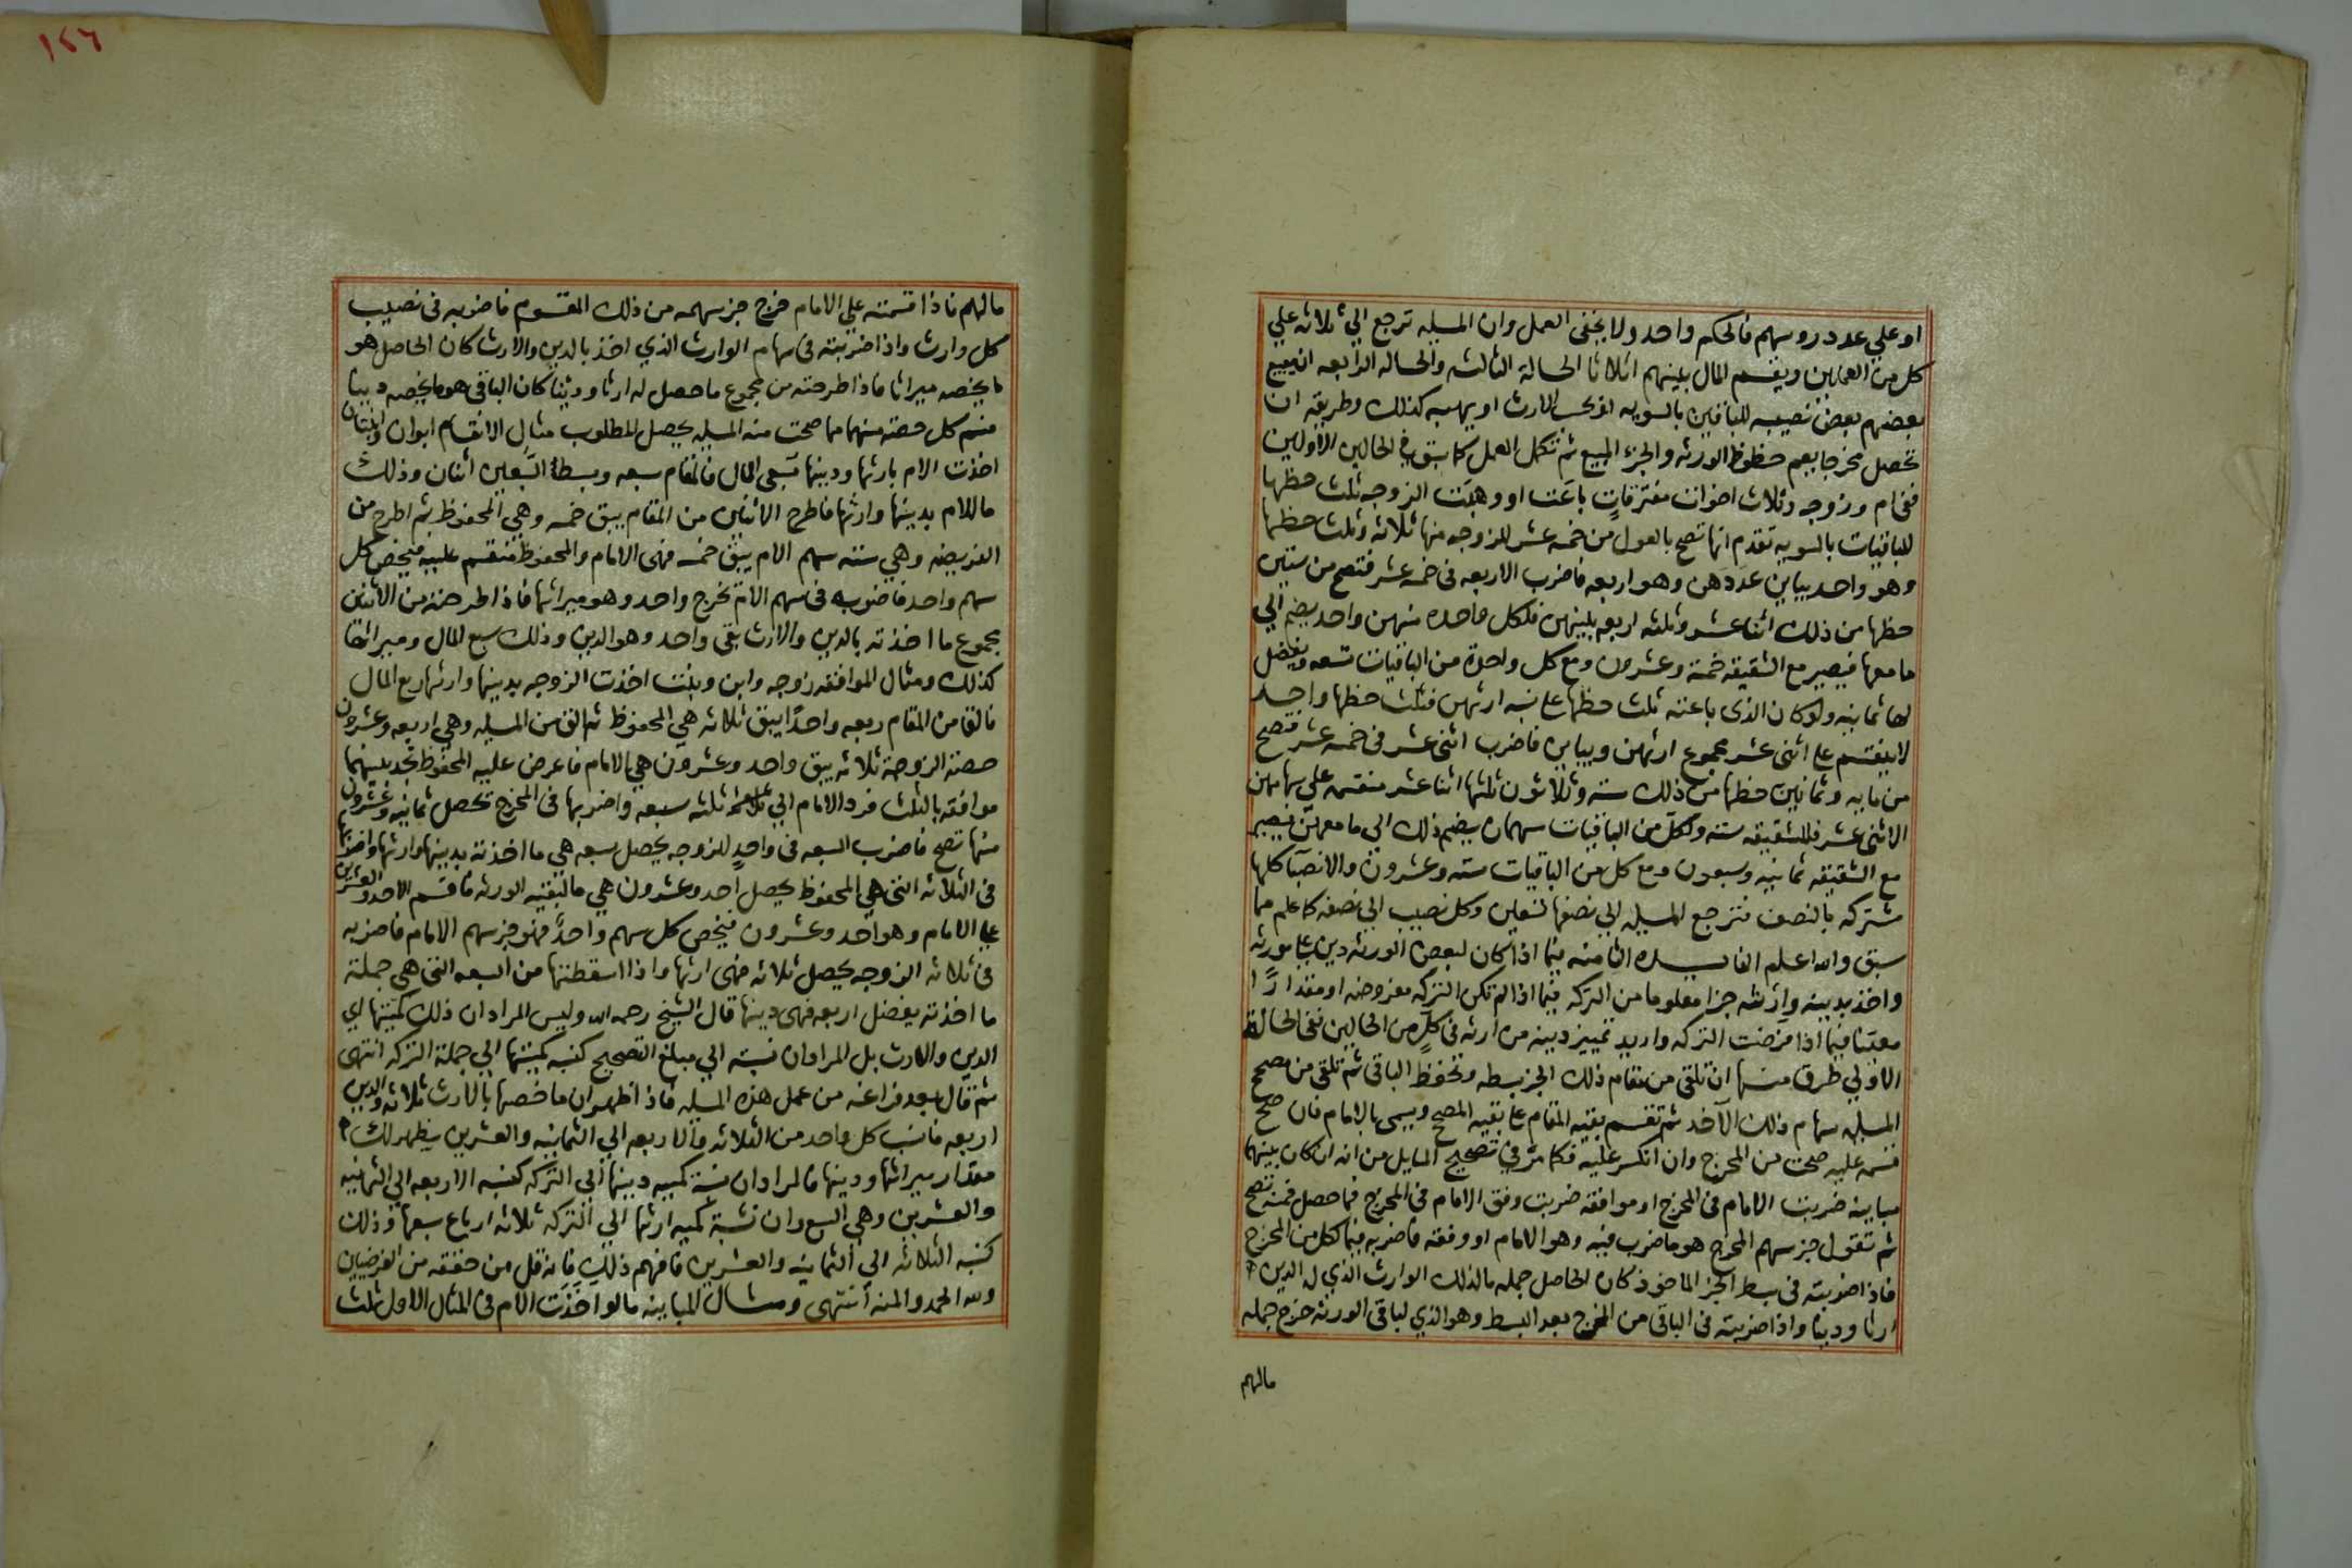 او علي عدد روسهم فالحكم واحد ولا يخفى العمل وان المسيله ترجع الي ثلاثه علي
كل من العملين ويقسم المال بينهم اثلاثا الحالة الثالثه والحاله الرابعه ان يبيع
بعضهم بعض نصيبه للباقين بالسويه او بحسب الارث او يهبه كذلك وطريقه ان
تحصل مخرجا يعم حظوظ الورثه والجزء المبيع ثم تكمل العمل كما سبق في الحالين الاولين
ففي ام وزوجه وثلاث اخوات مفترقات باعت او وهبت الزوجه ثلث حظها
للباقيات بالسويه تقدم انها تصح بالعول من خمسه عشر للزوجه منها ثلاثه وثلث حظها
وهو واحد يباين عددهن وهو اربعه فاضرب الاربعه في خمسه عشر فتصح من ستين
حظها من ذلك اثنا عشر وثلثه اربعه بينهن فلكل واحده منهن واحد يضم الي
ما معها فيصير مع الشقيقه خمسة وعشرون ومع كل واحدة من الباقيات تسعه ويفضل
لها ثمانيه ولو كان الذى باعته ثلث حظها على نسبه ارثهن فثلث حظها واحد
لا ينقسم على اثنى عشر مجموع ارثهن ويباين فاضرب اثنى عشر في خمسه عشر فتصح
من مايه وثمانين حظها من ذلك سته وثلاثون ثلثها اثنا عشر منقسمه علي سهامهن
الاثنى عشر فللشقيقه سته ولكل من الباقيات سهمان يضم ذلك الي ما معهن فيصير
مع الشقيقه ثمانيه وسبعون ومع كل من الباقيات سته وعشرون والانصبا كلها
مشتركه بالنصف فترجع المسيله الي نصفها تسعين وكل نصيب الي نصفه كما علم مما
سبق والله اعلم الفايده الثامنه فيما اذا كان لبعض الورثه دين على مورثه
واخذ بدينه وارثه جزا معلوما من التركه فيما اذا لم تكن التركه مفروضه او مقدارًا
معيّنا فيما اذا فرضت التركه واريد تمييز دينه من ارثه في كلٍ من الحالين ففي الحالة
الاولي طرق منها ان تلقي من مقام ذلك الجز بسطه وتحفظ الباقي ثم تلقي من مصحح
المسيله سهام ذلك الآخذ ثم تقسم بقيه المقام على بقيه المصحح ويسمى بالامام فان صح
قسمه عليه صحت من المخرج وان انكسر عليه فكما مرّ في تصحيح المسايل من انه ان كان بينهما
مباينه ضربت الامام في المخرج او موافقه ضربت وفق الامام في المخرج فما حصل فمنه تصح
ثم تقول جز سهم المخرج هو ما ضرب فيه وهو الامام او وفقه فاضربه فيما لكل من المخرج
فاذا ضربته في بسط الجز الماخوذ كان الحاصل جمله ما لذلك الوارث الذي له الدين
ارثا ودينا واذا ضربته في الباقي من المخرج بعد البسط وهو الذي لباقي الورثه خرج جمله
مالهم
١٢٦
مالهم فاذا قسمته على الامام خرج جز سهمه من ذلك المقسوم فاضربه في نصيب
كل وارث واذا ضربته في سهام الوارث الذي اخذ بالدين والارث كان الحاصل هو
ما يخصه ميراثا فاذا طرحته من مجموع ما حصل له ارثا ودينا كان الباقي هو ما يخصه دينا
كل حصته منهما مما صحت منه المسيله يحصل المطلوب مثال الانقسام ابوان وابنتان
اخذت الام بارثها ودينها سبعي المال فالمقام سبعه وبسط السبعين اثنان وذلك
ما للام بدينها وارثها فاطرح الاثنين من المقام يبق خمسه وهي المحفوظ ثم اطرح من
الفريضه وهي سته سهم الام يبق خمسه فهى الامام والمحفوظ منقسم عليه فيخص كل
سهم واحد فاضربه في سهم الام تخرج واحد وهو ميراثها فاذا طرحته من الاثنين
مجموع ما اخذته بالدين والارث بقى واحد وهو الدين وذلك سبع المال وميراثها
كذلك ومثال الموافقه زوجه وابن وبنت اخذت الزوجه بدينها وارثها ربع المال
فالق من المقام ربعه واحدًا يبق ثلاثه هي المحفوظ ثم الق من المسيله وهي اربعه وعشرون
حصة الزوجة ثلاثه يبق واحد وعشرون هي الامام فاعرض عليه المحفوظ تجد بينهما
موافقه بالثلث فرد الامام الي ثلثه سبعه واضربها في المخرج تحصل ثمانيه وعشرون
منها تصح فاضرب السبعه في واحدٍ للزوجه يحصل سبعه هي ما اخذته بدينها وارثها واضربها
في الثلاثه التى هي المحفوظ يحصل احد وعشرون هي ما لبقيه الورثه فاقسم الاحد والعشرين
على الامام وهو احد وعشرون فيخص كل سهم واحدٌ فهو جز سهم الامام فاضربه
في ثلاثه الزوجه يحصل ثلاثه فهى ارثها واذا اسقطتها من السبعه التى هي جملة
ما اخذته يفضل اربعه فهى دينها قال الشيخ رحمه الله وليس المراد ان ذلك كميتها اي
الدين والارث بل المراد ان نسبته الي مبلغ التصحيح كنسبه كميتها الي جملة التركه انتهى
ثم قال بعد فراغه من عمل هذه المسيله فاذا ظهر ان ما خصها بالارث ثلاثه والدين
اربعه فانسب كل واحد من الثلاثه والاربعه الي الثمانيه والعشرين يظهر لك
مقدار ميراثها ودينها فالمراد ان نسبة كميه دينها الي التركه كنسبه الاربعه الي الثمانيه
والعشرين وهي السبع وان نسبة كميه ارثها الي التركه ثلاثه ارباع سبعها وذلك
كنسبه الثلاثه الي الثمانيه والعشرين فافهم ذلك فانه قل من حققه من الفرضيين
ولله الحمد والمنه انتهى ومثال المباينه ما لو اخذت الام في المثال الاول ثلث